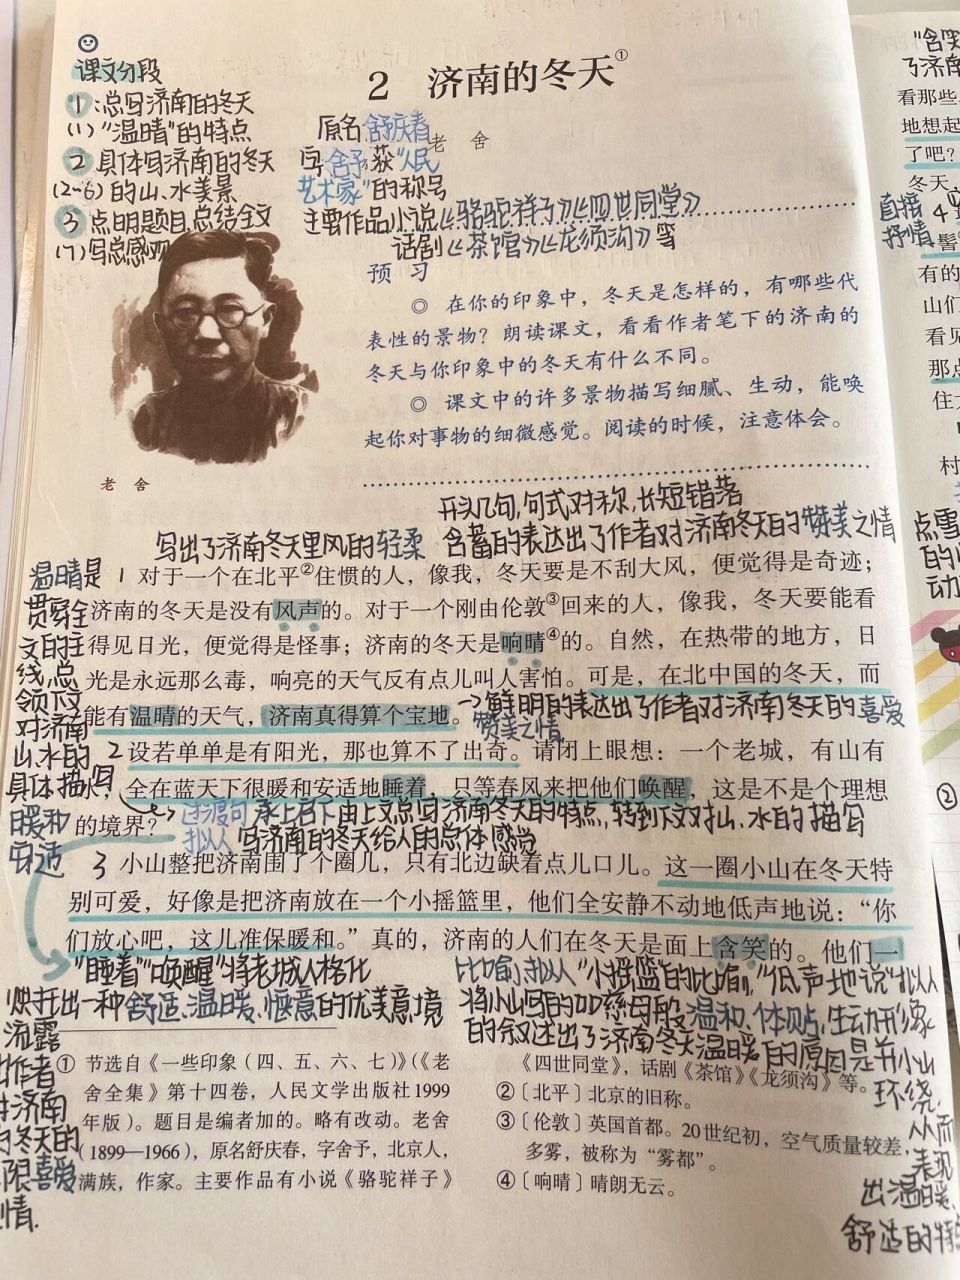 课文分段
1:总写济南的冬天
(1)"温晴"的特点
2 具体写济南的冬天
(2-6)的山、水美景
3 点明题目,总结全文
(7)写总感观
2 济南的冬天①
老 舍
原名舒庆春
字舍予,获"人民
艺术家"的称号
主要作品小说《骆驼祥子》《四世同堂》
话剧《茶馆》《龙须沟》等
预 习
◎ 在你的印象中,冬天是怎样的,有哪些代
表性的景物?朗读课文,看看作者笔下的济南的
冬天与你印象中的冬天有什么不同。
◎ 课文中的许多景物描写细腻、生动,能唤
起你对事物的细微感觉。阅读的时候,注意体会。
老 舍
开头几句,句式对称,长短错落
写出了济南冬天里风的轻柔
含蓄的表达出了作者对济南冬天的赞美之情
温晴是
贯穿全
文的主
线,点
领下文
对济南
山、水的
具体描写
1 对于一个在北平②住惯的人,像我,冬天要是不刮大风,便觉得是奇迹;
济南的冬天是没有风声的。对于一个刚由伦敦③回来的人,像我,冬天要能看
得见日光,便觉得是怪事;济南的冬天是响晴④的。自然,在热带的地方,日
光是永远那么毒,响亮的天气反有点儿叫人害怕。可是,在北中国的冬天,而
能有温晴的天气,济南真得算个宝地。
→鲜明的表达出了作者对济南冬天的喜爱
赞美之情
2 设若单单是有阳光,那也算不了出奇。请闭上眼想:一个老城,有山有
水,全在蓝天下很暖和安适地睡着,只等春风来把他们唤醒,这是不是个理想
的境界?
过渡句 承上启下由上文总写济南冬天的特点,转到下文对山、水的描写
拟人 写济南的冬天给人的总体感觉
暖和
安适
3 小山整把济南围了个圈儿,只有北边缺着点儿口儿。这一圈小山在冬天特
别可爱,好像是把济南放在一个小摇篮里,他们全安静不动地低声地说:"你
们放心吧,这儿准保暖和。"真的,济南的人们在冬天是面上含笑的。他们一
"睡着""唤醒"将老城人格化
烘托出一种舒适、温暖、惬意的优美意境
流露
出作者
对济南
的冬天的
喜爱
情.
比喻,拟人 "小摇篮"的比喻,"低声地说"拟人
将小山写的如慈母般温和、体贴,生动形象
的叙述出了济南冬天温暖的原因是并小山
环绕,
从而
表现
出温暖
舒适的特
① 节选自《一些印象(四、五、六、七)》(《老
舍全集》第十四卷,人民文学出版社1999
年版)。题目是编者加的。略有改动。老舍
(1899—1966),原名舒庆春,字舍予,北京人,
满族,作家。主要作品有小说《骆驼祥子》
《四世同堂》,话剧《茶馆》《龙须沟》等。
②〔北平〕北京的旧称。
③〔伦敦〕英国首都。20世纪初,空气质量较差,
多雾,被称为"雾都"。
④〔响晴〕晴朗无云。
"含笑
了济南
看那些
地想起
了吧?
冬天
直接
抒情
4
髻
有的
山们
看见
那点
住
村
点雪
的
动
②